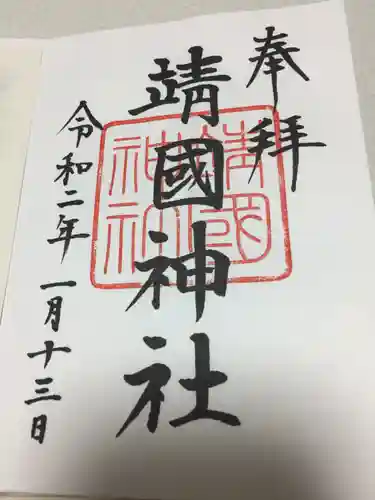 奉拝
靖國神社
靖國神社
令和二年一月十三日